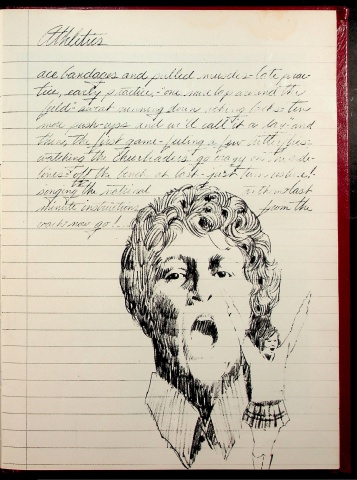 Athletics
ace bandages and pulled muscles - late prac-
tice, early practice - "one more lap around the
field" - sweat running down aching backs - ten
more push-ups and we'll call it a day" and
then, the first game - feeling a few jitters -
watching the cheerleaders go crazy on the side-
lines - off the bench at last - first
singing the national with last
minute instructions from the
coach - now go!